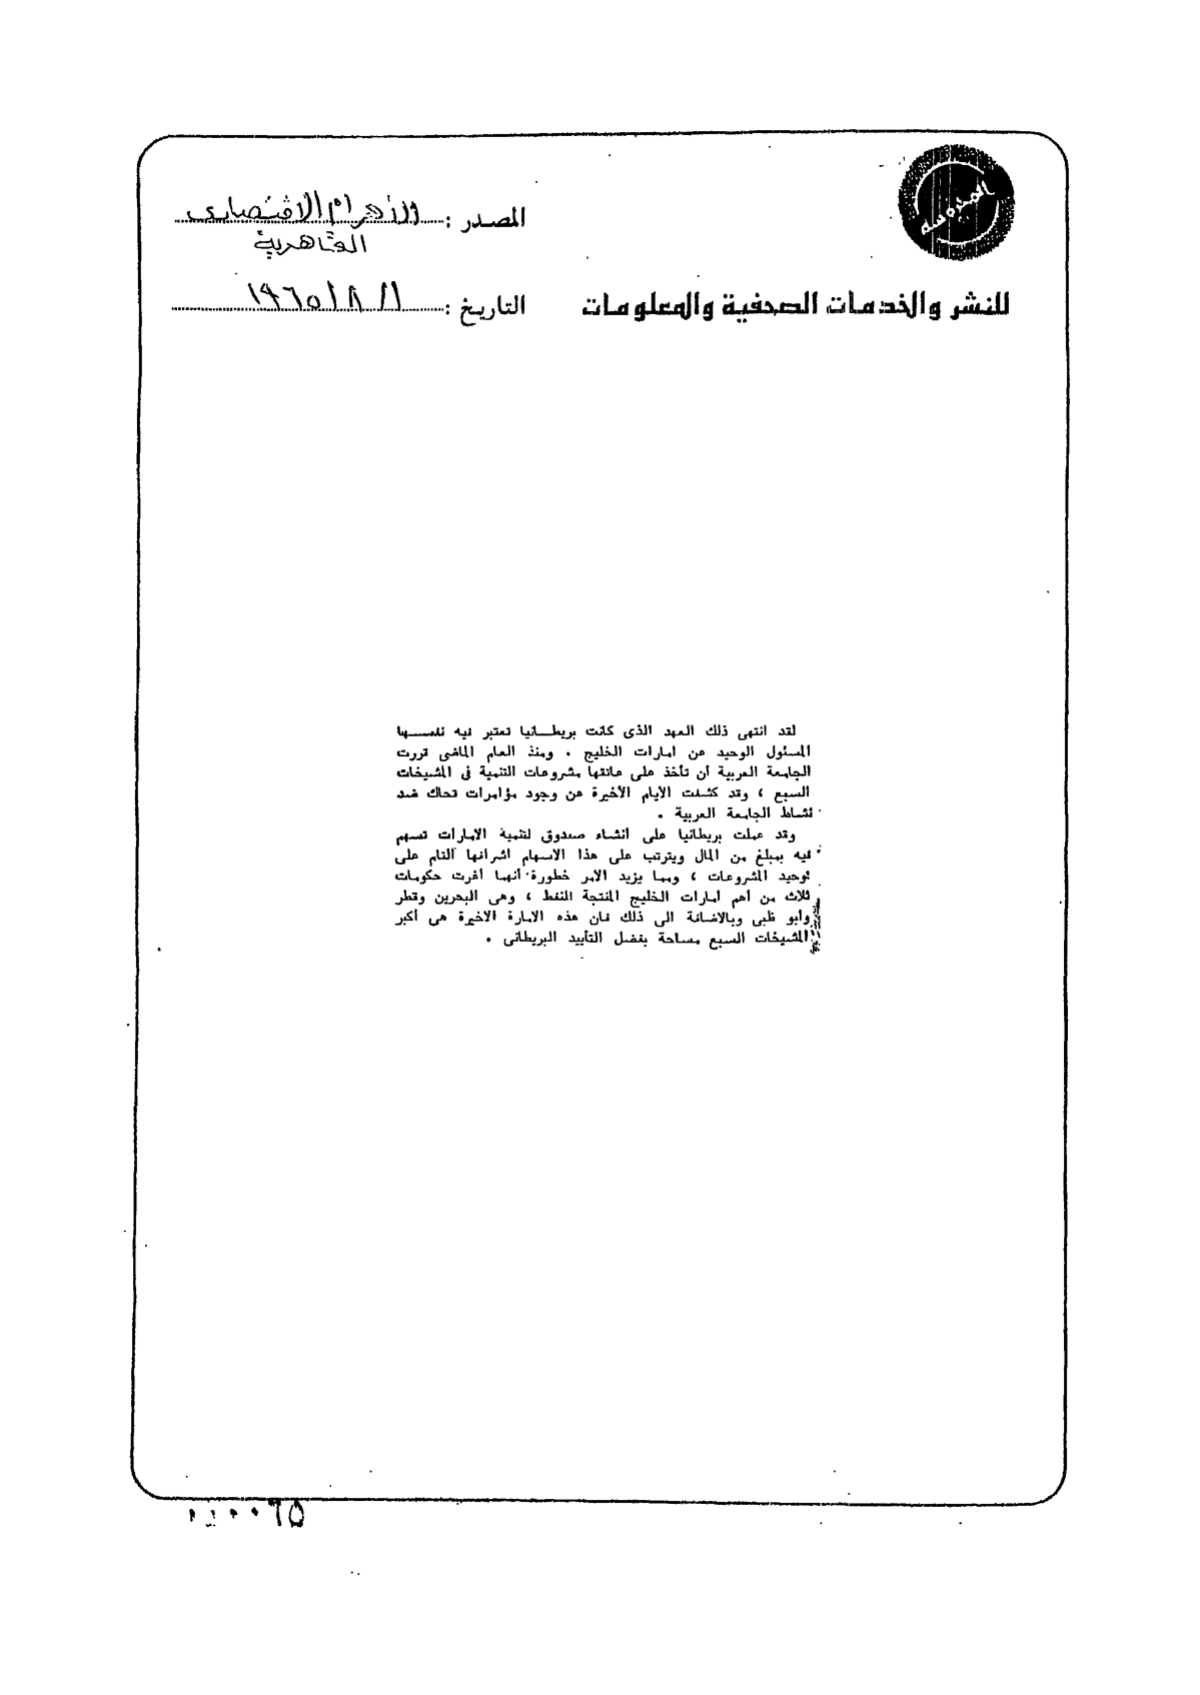 المحروسة
المصدر : الأهرام الاقتصادى
القاهرية
للنشر والخدمات الصحفية والمعلومات
التاريخ : ١/ ٨ / ١٩٦٥
لقد انتهى ذلك العهد الذى كانت بريطـــانيا تعتبر فيه نفســـها
المسئول الوحيد عن امارات الخليج . ومنذ العام الماضى قررت
الجامعة العربية أن تأخذ على عاتقها مشروعات التنمية فى المشيخات
السبع ، وقد كشفت الايام الأخيرة عن وجود مؤامرات تحاك ضد
نشاط الجامعة العربية .
وقد عملت بريطانيا على انشاء صندوق لتنمية الامارات تسهم
فيه بمبلغ من المال ويترتب على هذا الاسهام اشرافها التام على
توحيد المشروعات ، ومما يزيد الامر خطورة أنهـا أغرت حكومات
ثلاث من أهم امارات الخليج المنتجة للنفط ، وهى البحرين وقطر
وأبو ظبى وبالاضافة الى ذلك فان هذه الامارة الاخيرة هى أكبر
المشيخات السبع مساحة بفضل التأييد البريطانى .